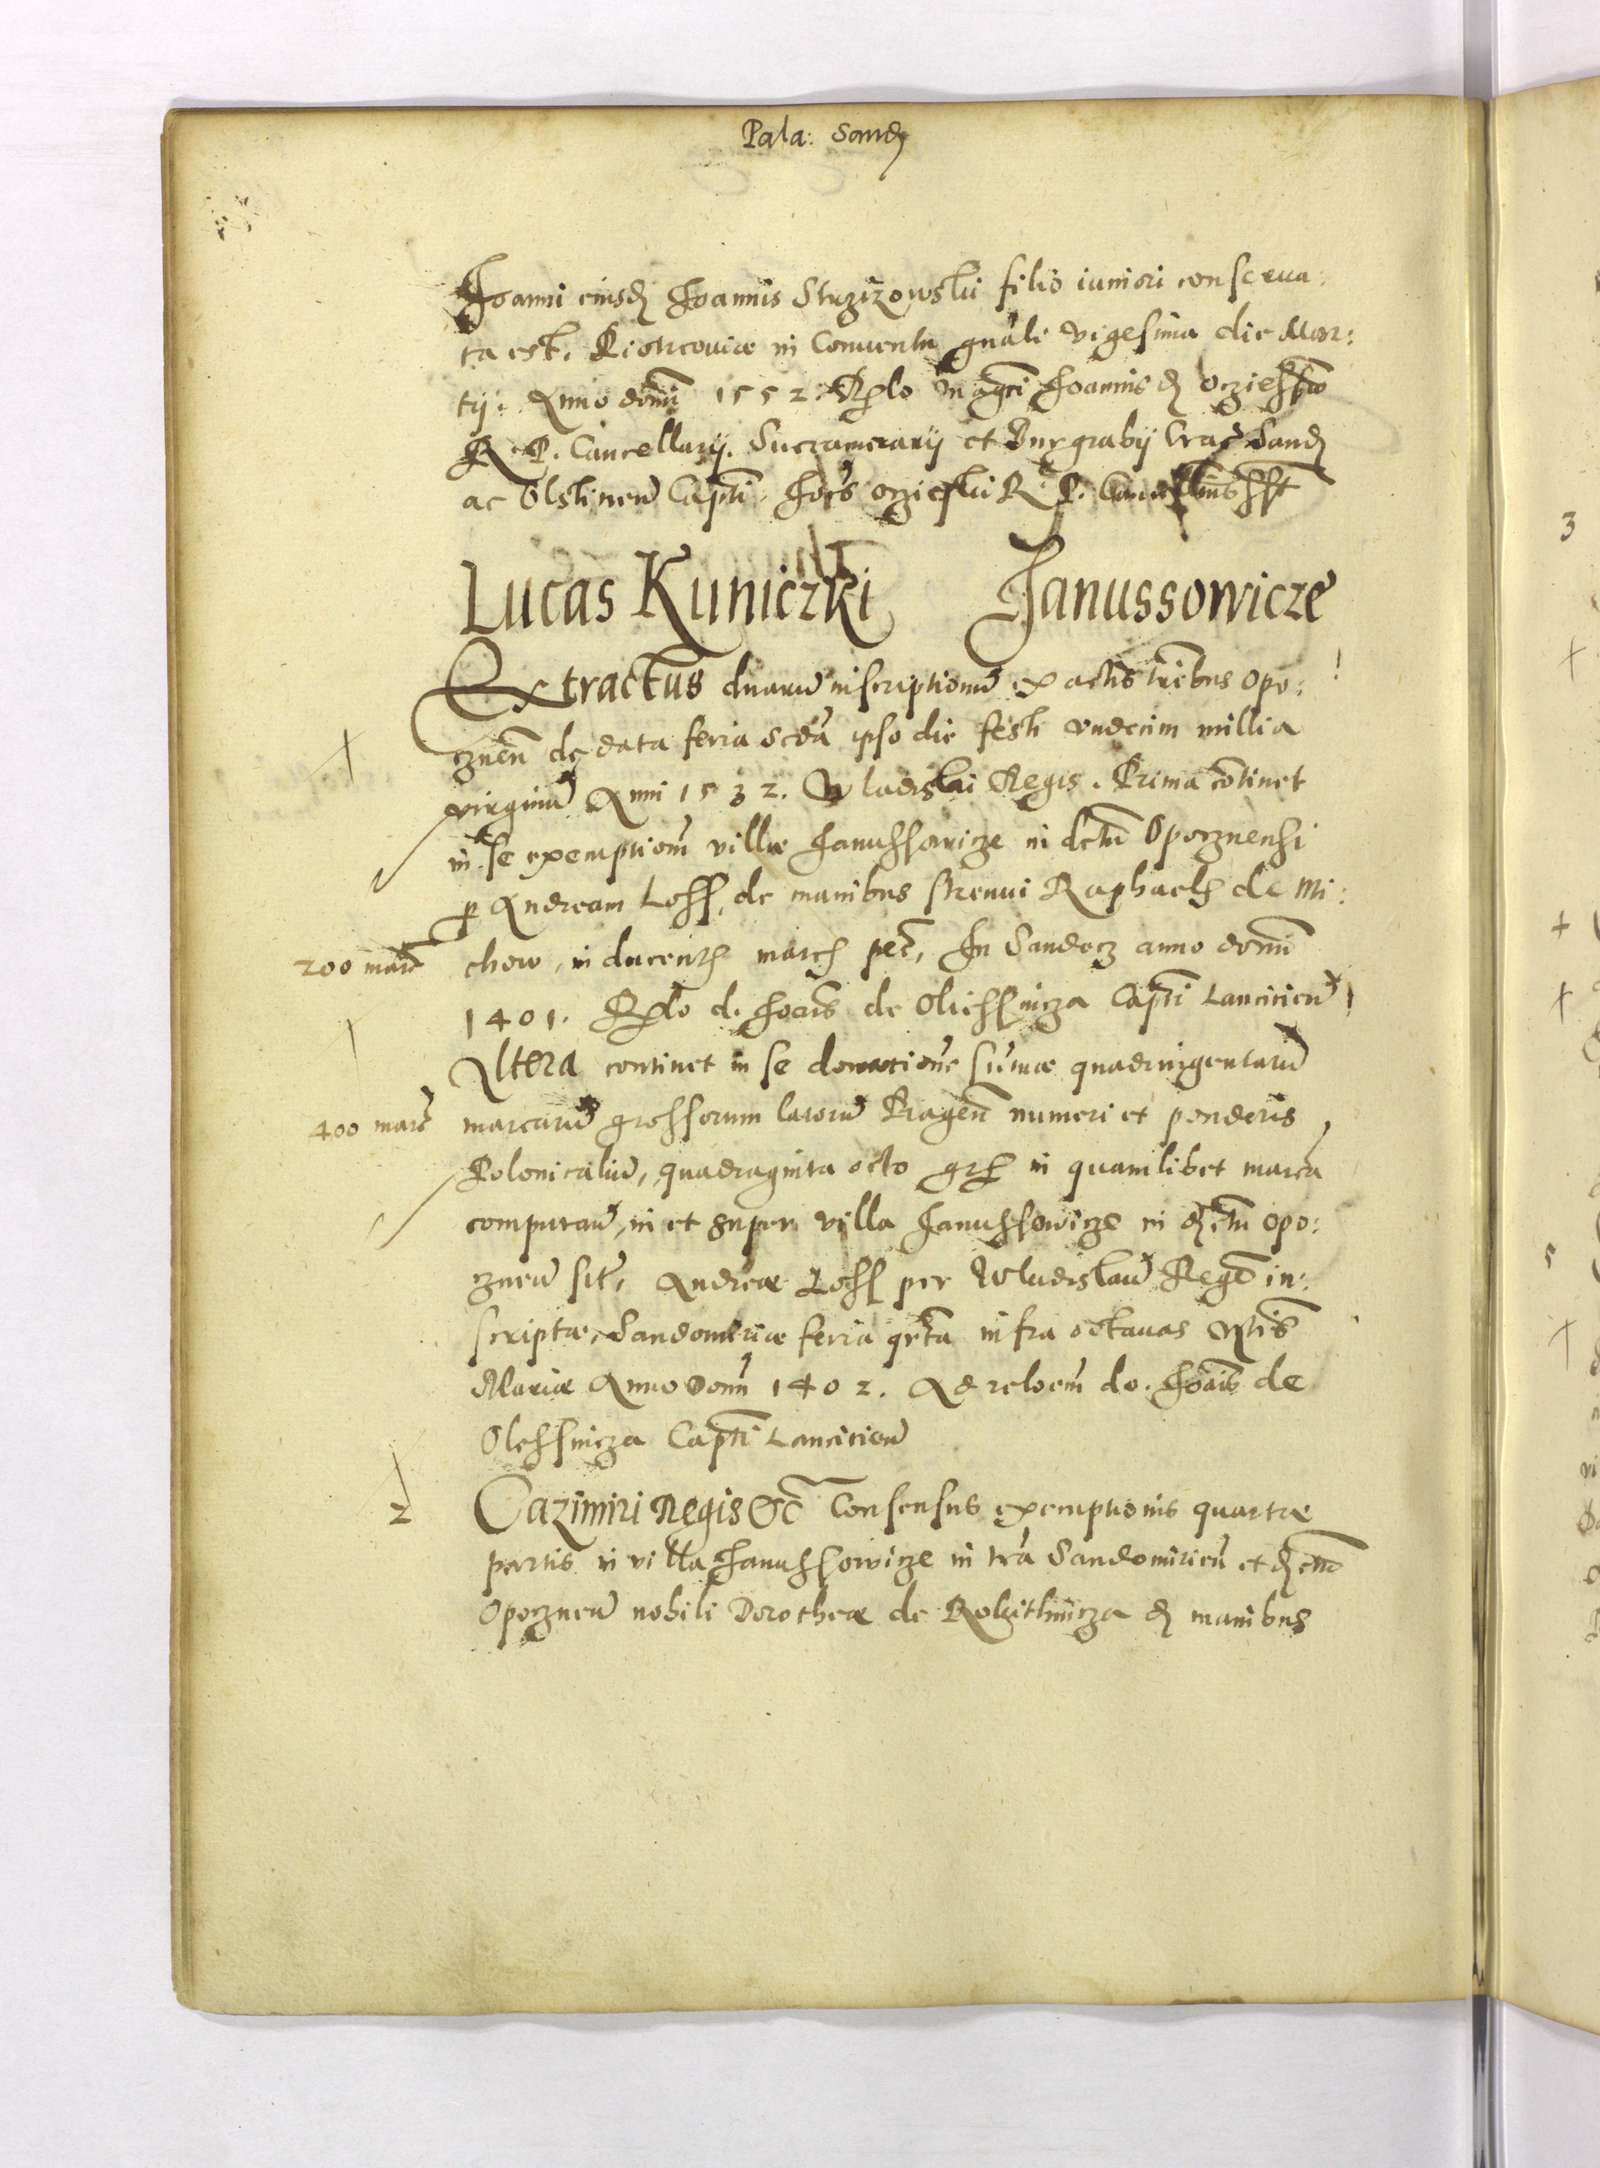 Pala: Sand
Joanni eiusd Joannis Strzizowski filio iuniori conserua:
ta est. Piotrcoviæ in Conventu gnali vigesima die Mar:
tij. Anno domi 1552. Rlo Magci Joannis d Oczieskio
R. P. Cancellarij. Succamerarij et Burgrabij Crac Sand
ac Olstinen Capti. Joes oczieski R. P. Cancellarius sst
Lucas Kuniczki Janussowicze
Extractus duaru inscriptionu ex actis tribus Opo:
cznen de data feria scda ipso die festi undecim millia
virginu Anni 1532. Wladislai Regis. Prima cotinet
in se exemptiom villæ Janussowicze in dctu Opocznensi
p Andream Loss, de manibus strenui Raphaelis de Mi:
200 marc chow, in ducentis marcis pec, In Sandecz anno domi
1401. Rlo d. Joais de Oliessnicza Capti Lancicien
Altera continet in se donatione sumæ quadringentaru
400 marc marcaru grossorum latoru Pragen numeri et ponderis
Polonicaliu, quadraginta octo grs in quamlibet marca
computan, in et super villa Janussowicze in dctu opo:
cznen sit, Andreæ Loss per Wladislau Rege in:
scriptæ, Sandomiriæ feria qrta infra octavas Nttis
Mariæ Anno Domi 1402. Ad reloem do. Joais de
Olessnicza Capti Lancicien
2 Cazimiri Regis &c Consensus exemptionis quartæ
partis in villa Janussowicze in tra Sandomirien et dctu
Opocznen nobili Dorotheæ de Rokithnicza d manibus